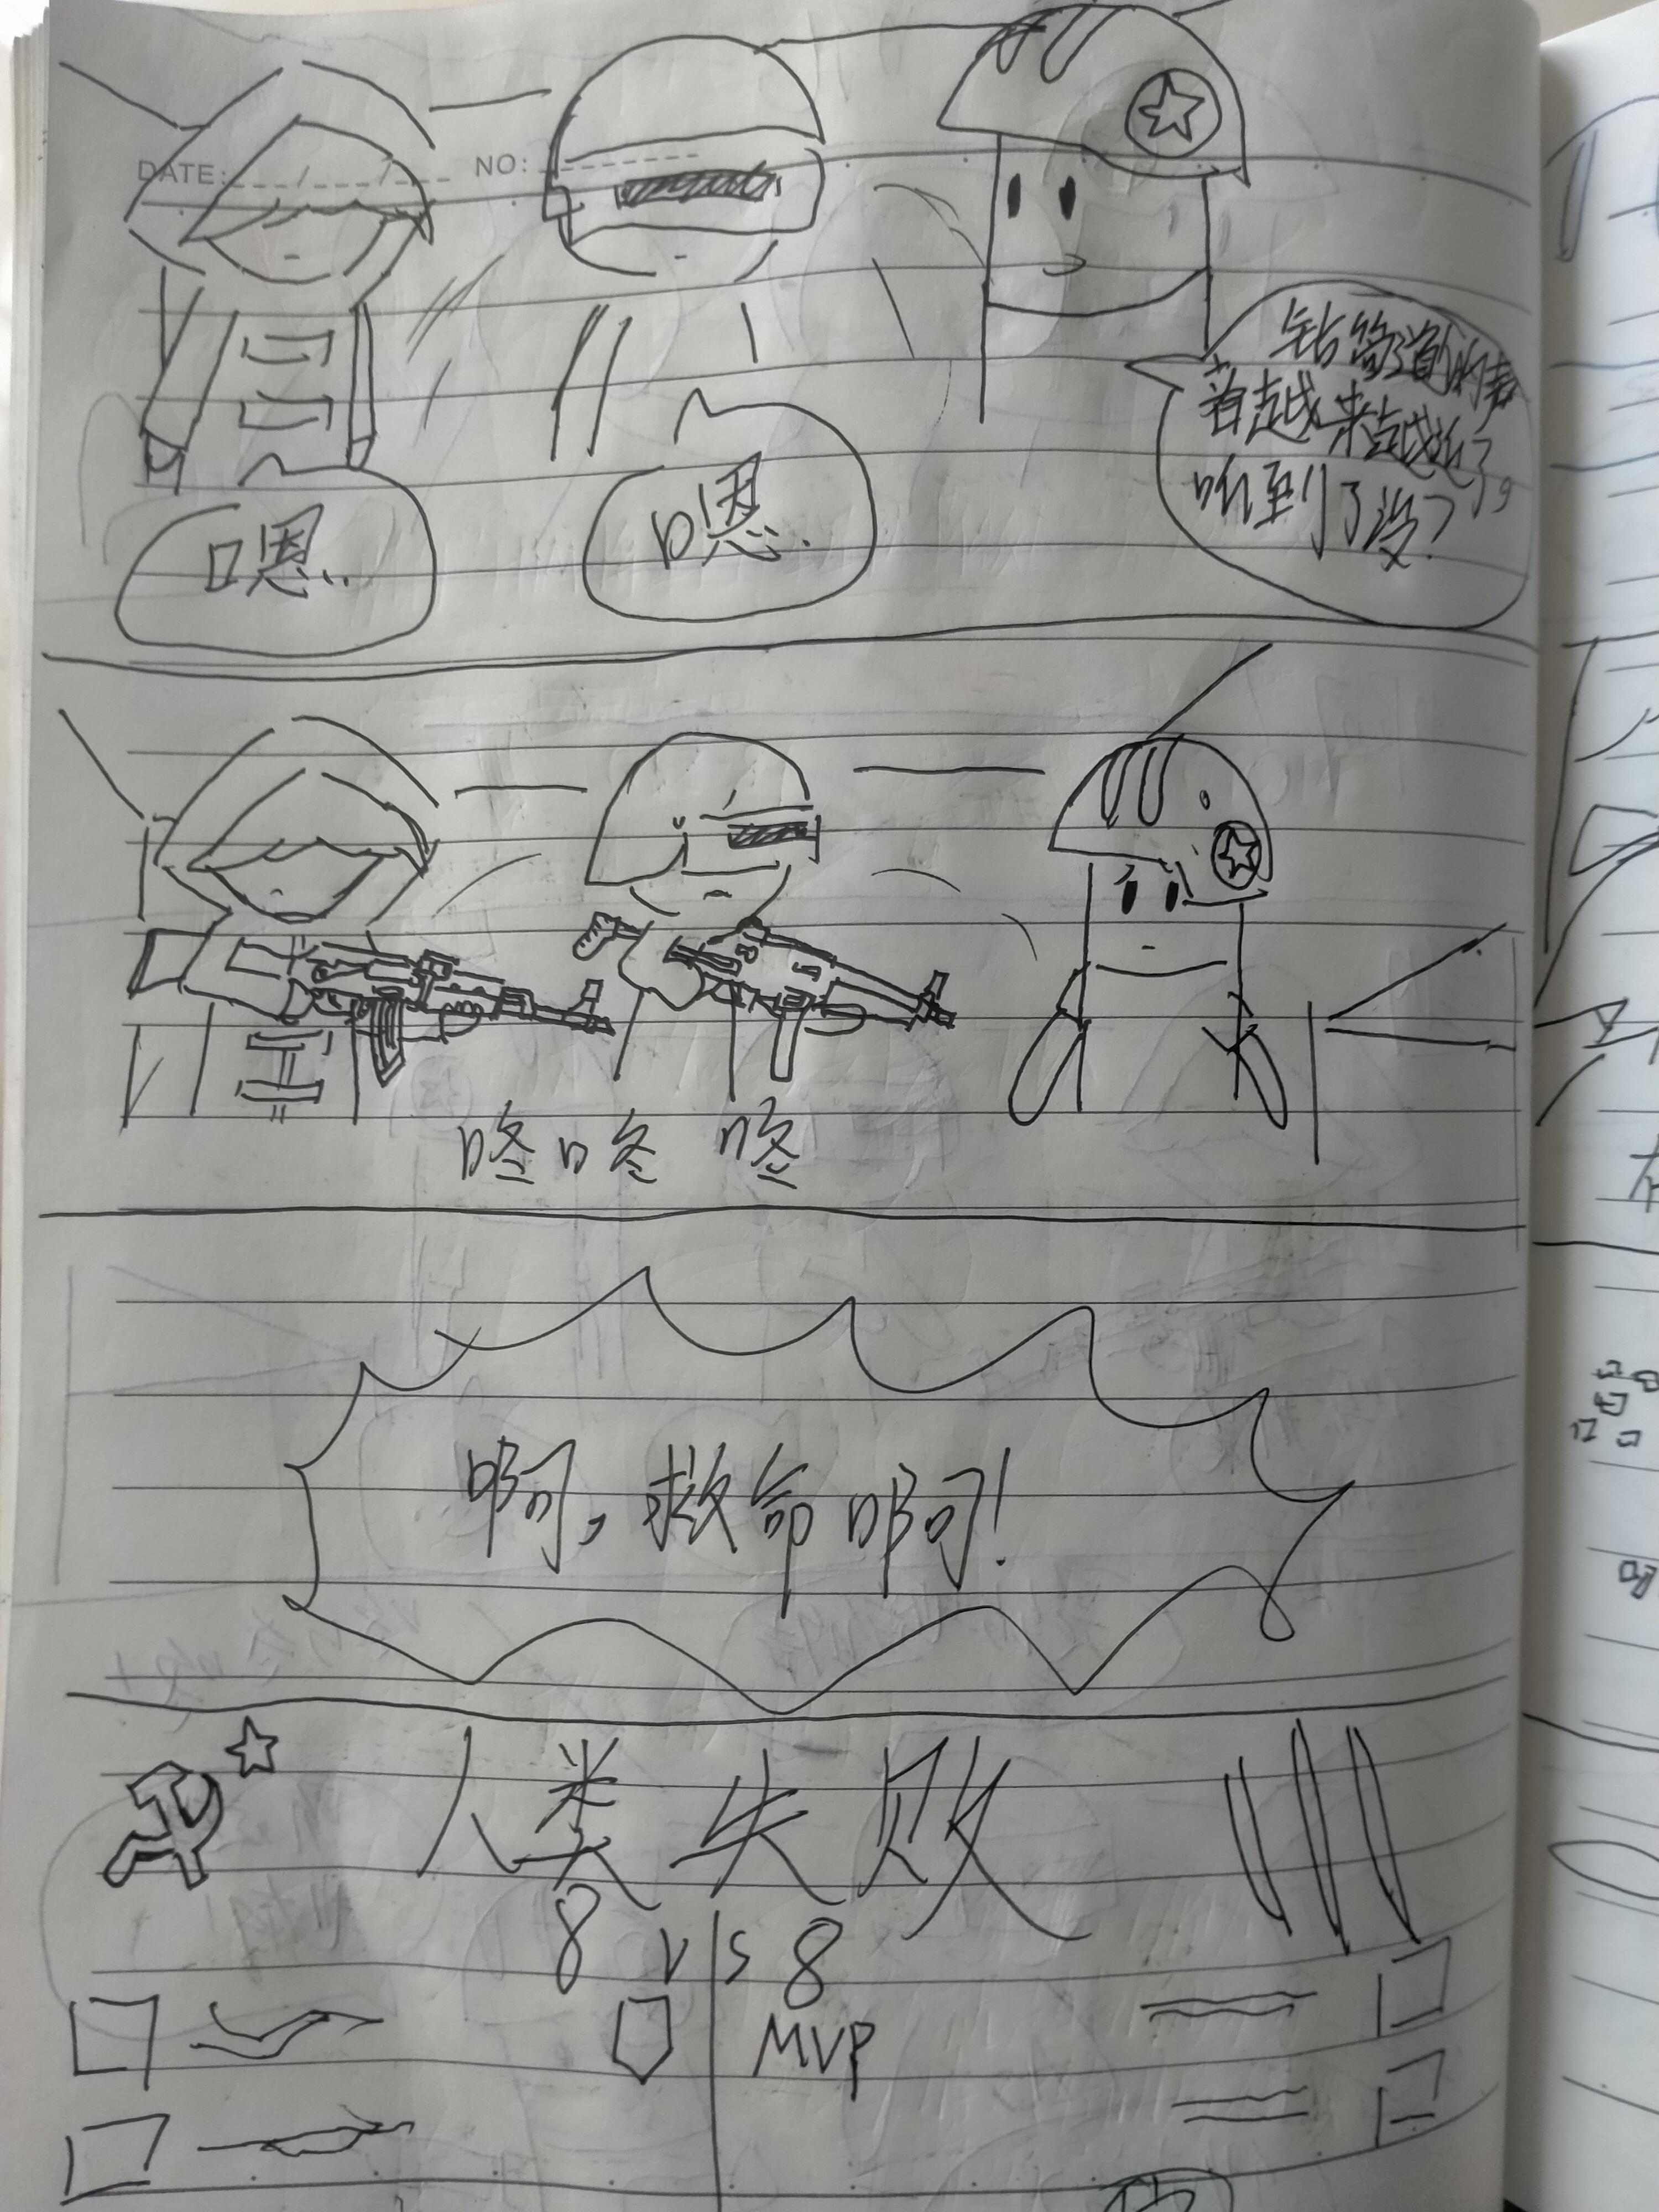 DATE: / / NO:
钻管道的声
着越来越近了
咱到了没？
嗯..
嗯.
咚咚 咚
啊，救命啊！
人类失败
8 VS 8
MVP